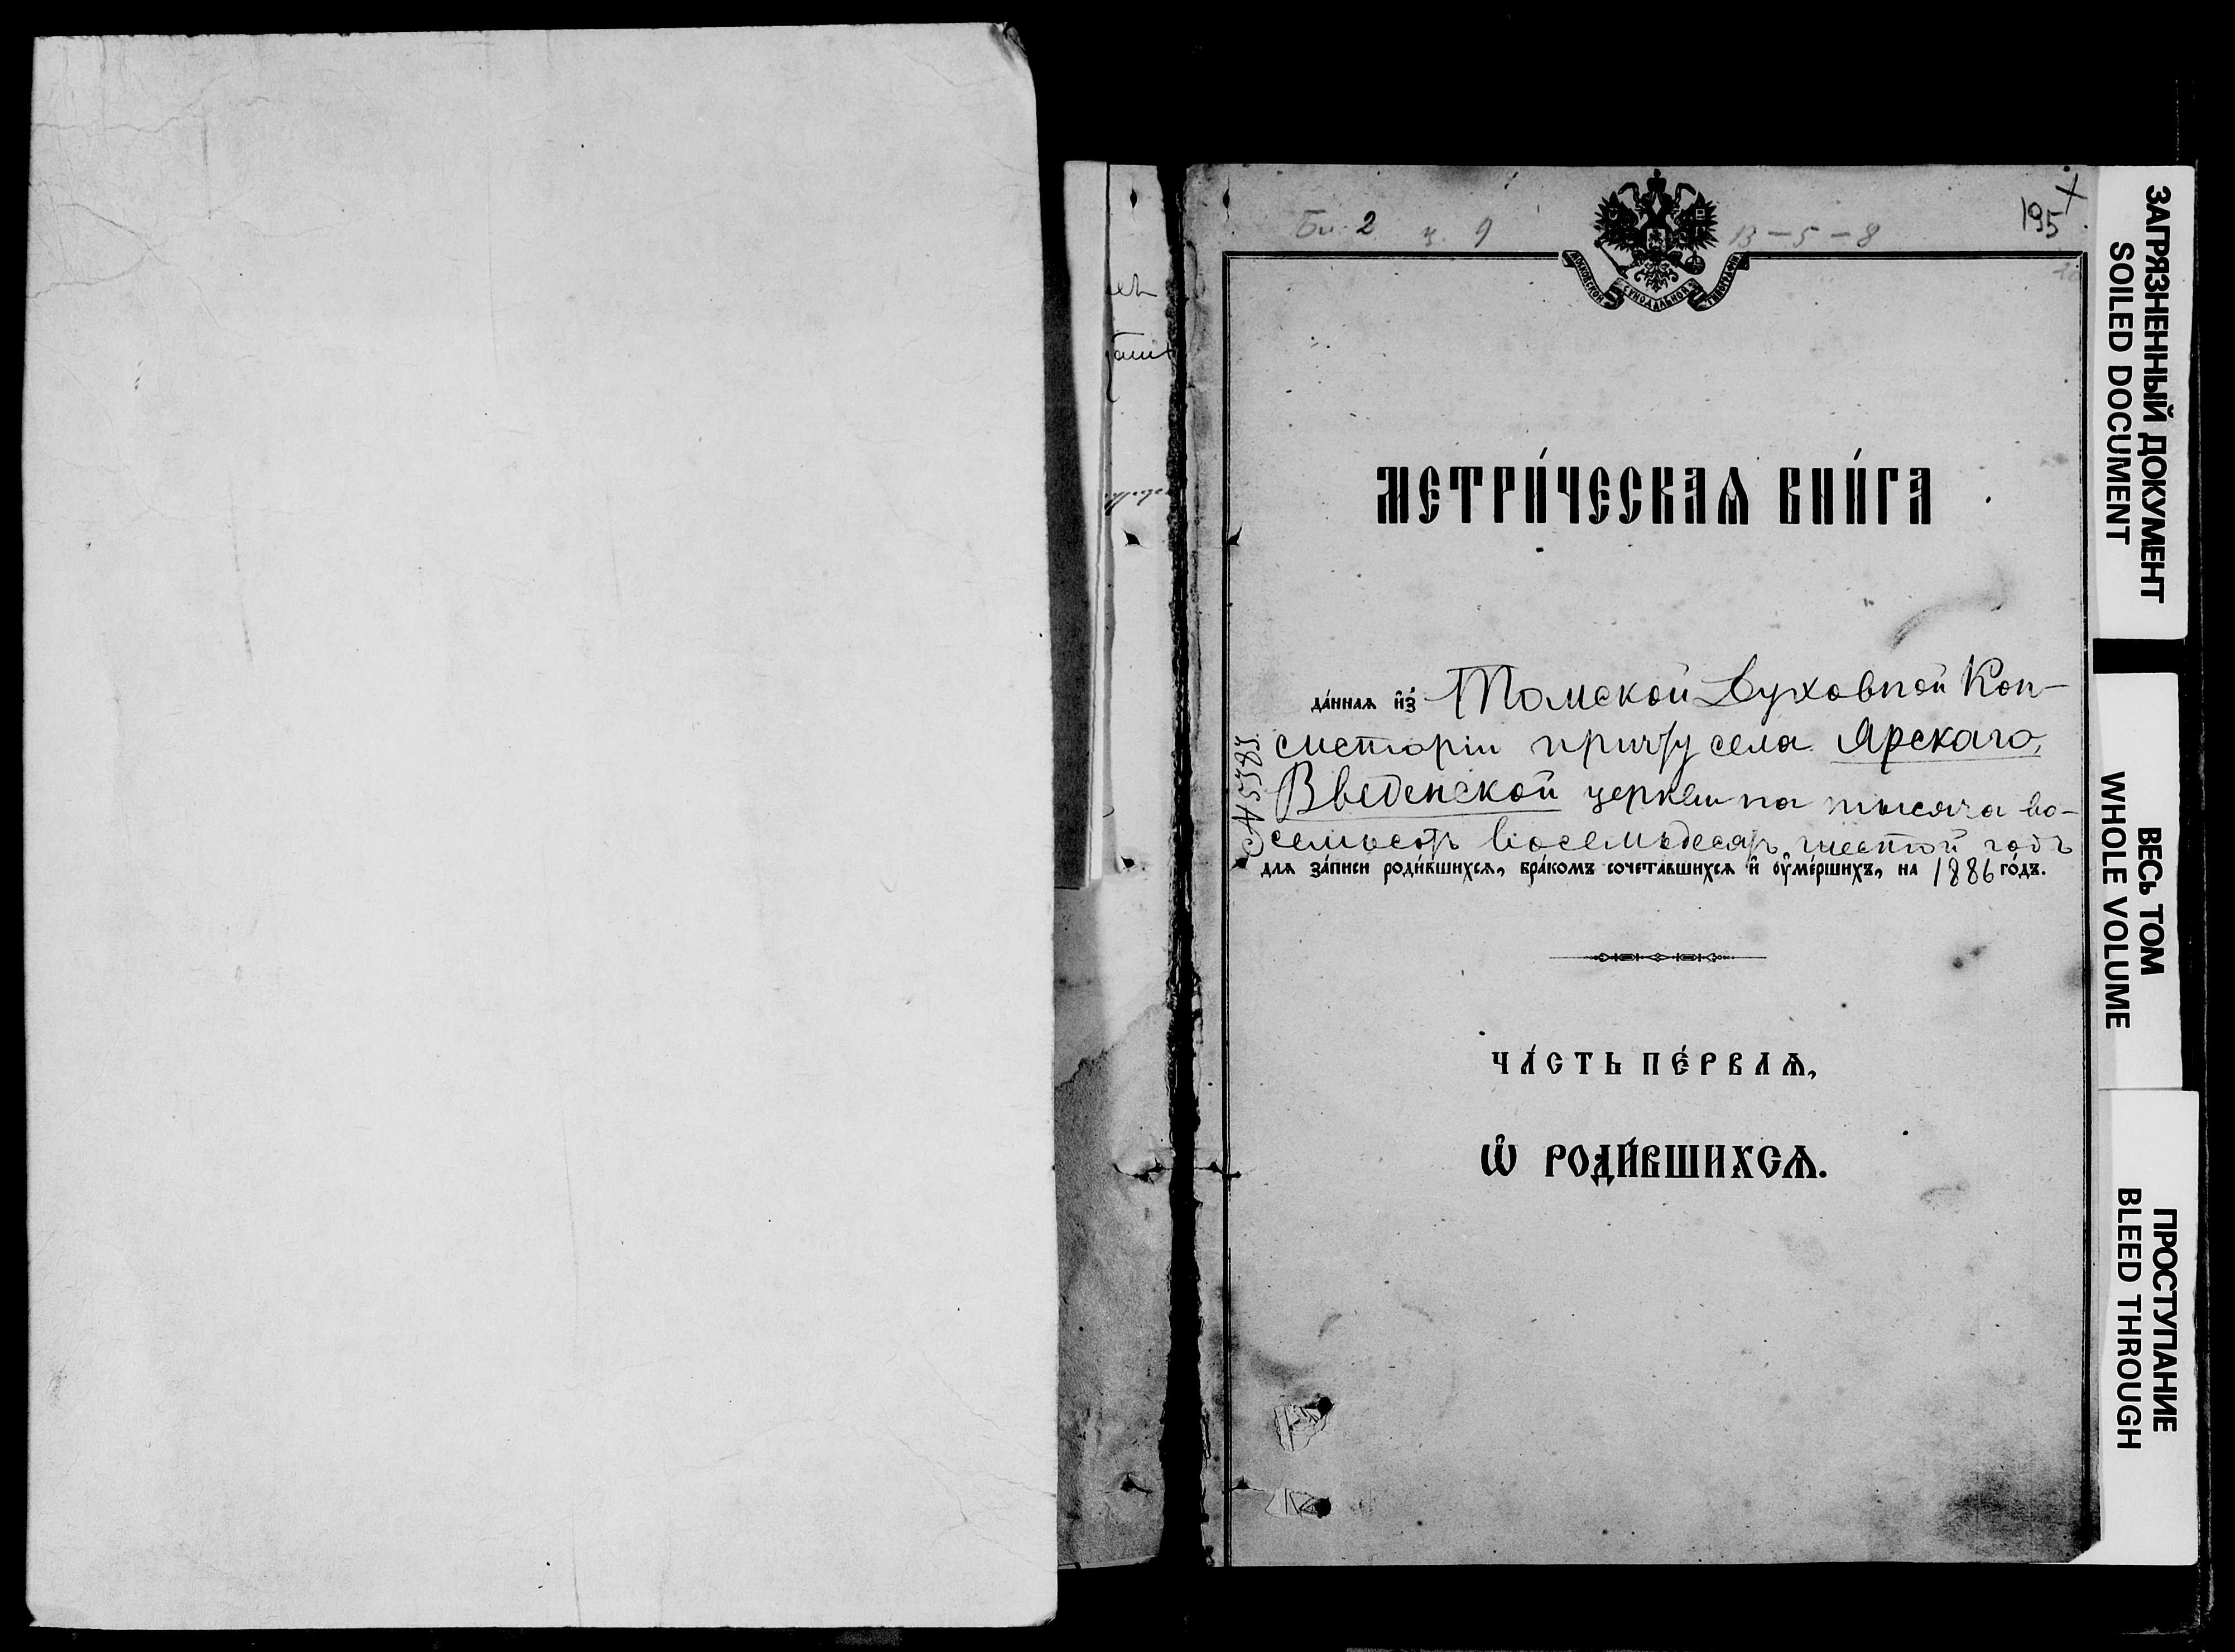 Бн. 2 ч. 9 13-5-8
195
МОСКОВСКОЙ СѴНОДАЛЬНОЙ ТИПОГРАФІИ
МЕТРИ́ЧЕСКАѦ КНИ́ГА
да́ннаѧ и҆з̾ Томской Духовной Кон-
систоріи причту села Ярскаго,
Введенской церкви на тысяча во-
семьсотъ восемьдесятъ шестой годъ
№ 5383.
для за́писи роди́вшихсѧ, бра́комъ сочета́вшихсѧ и҆ ᲂу҆ме́ршихъ, на 1886 го́дъ.
ЧА́СТЬ ПЕ́РВАѦ,
Ѽ РОДИ́ВШИХСѦ.
ЗАГРЯЗНЕННЫЙ ДОКУМЕНТ
SOILED DOCUMENT
ВЕСЬ ТОМ
WHOLE VOLUME
ПРОСТУПАНИЕ
BLEED THROUGH